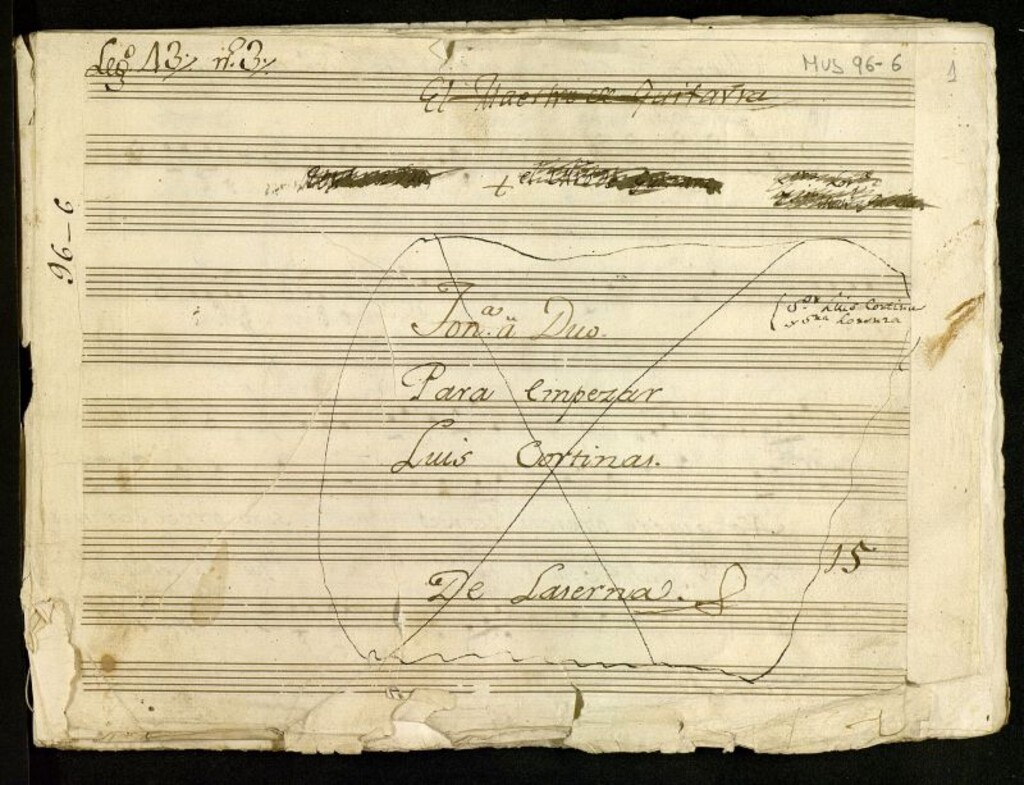 Leg.º 43,, n.º 3,,
MUS 96-6
1
El Maestro de Guitarra
96-6
Ton.ª â Duo.
S.or Luis Cortinas
y S.ra Lorenza
Para empezar
Luis Cortinas.
15
De Laserna.